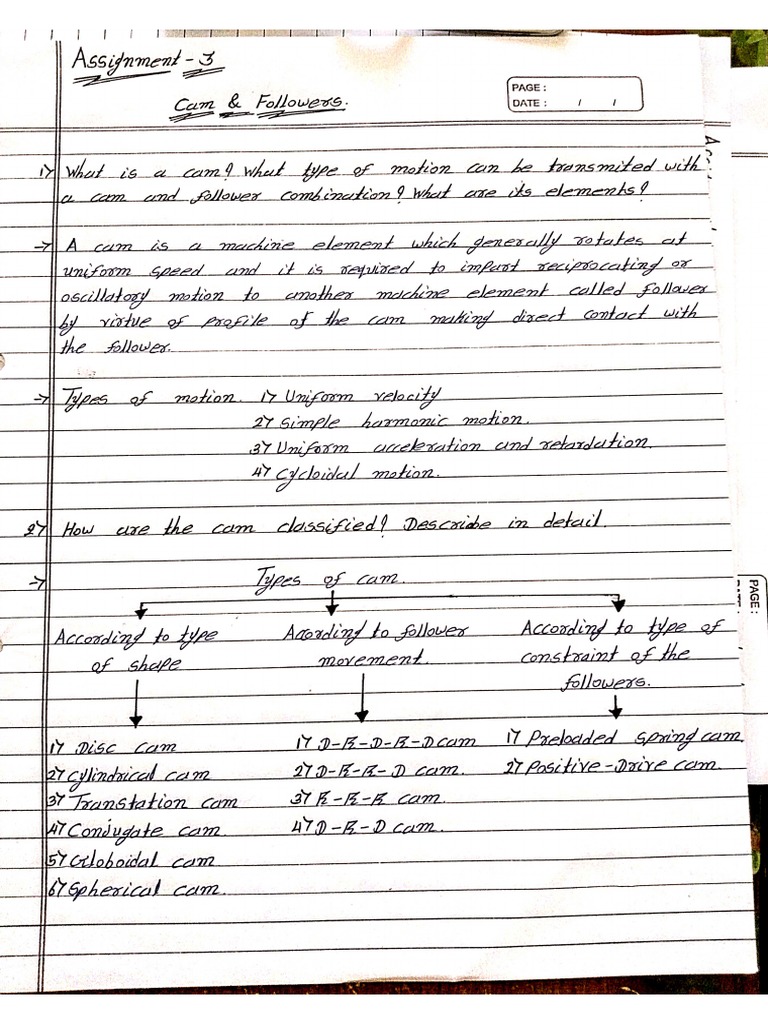 Assignment - 3
Cam & Followers.
PAGE :
DATE : / /
1) What is a cam? What type of motion can be transmited with
a cam and follower combination? What are its elements?
→ A cam is a machine element which generally rotates at
uniform speed and it is required to impart reciprocating or
oscillatory motion to another machine element called follower
by virtue of profile of the cam making direct contact with
the follower.
→ Types of motion. 1) Uniform velocity
2) Simple harmonic motion.
3) Uniform acceleration and retardation.
4) Cycloidal motion.
2) How are the cam classified? Describe in detail.
→ Types of cam.
According to type
of shape
1) Disc cam
2) Cylindrical cam
3) Translation cam
4) Conjugate cam.
5) Globoidal cam
6) Spherical cam.
Acording to follower
movement.
1) D-R-D-R-D cam
2) D-R-R-D cam.
3) R-R-R cam.
4) D-R-D cam.
According to type of
constraint of the
followers.
1) Preloaded spring cam.
2) Positive-Drive cam.
PAGE :